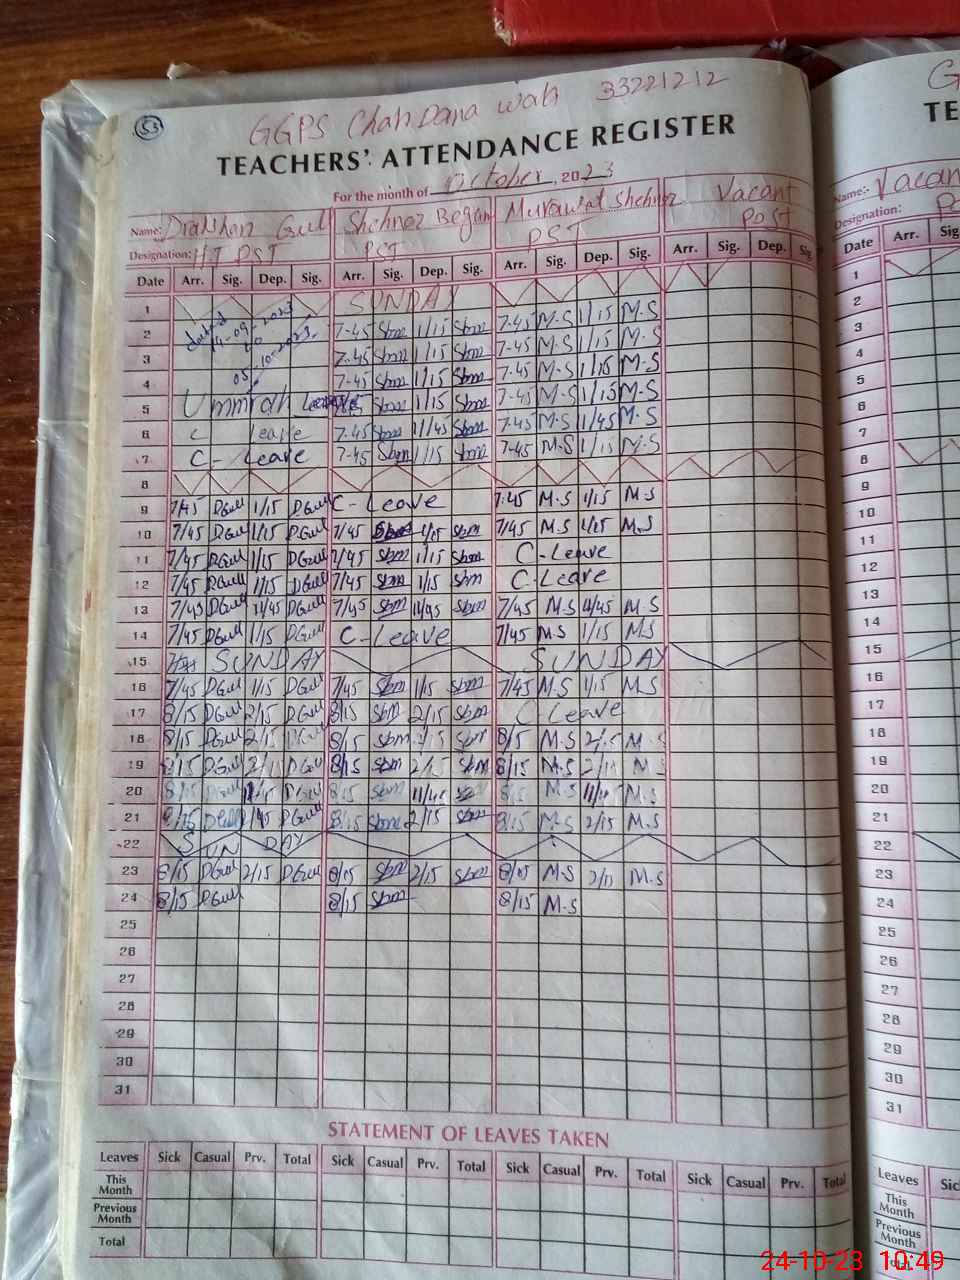 53
GGPS Chah Dana Wah 33221212
TEACHERS' ATTENDANCE REGISTER
For the month of October, 2023
Name: Gull Shehnaz Begam Murawat Shehnaz Vacant
Designation: HT PST PST PST Post
Date Arr. Sig. Dep. Sig. Arr. Sig. Dep. Sig. Arr. Sig. Dep. Sig. Arr. Sig. Dep. Sig.
1 SUNDAY
2 dated 14-09-2023 7-45 Sbm 1/15 Sbm 7-45 M.S 1/15 M.S
3 to 7-45 Sbm 1/15 Sbm 7-45 M.S 1/15 M.S
4 05-10-2023 7-45 Sbm 1/15 Sbm 7-45 M.S 1/15 M.S
5 Ummrah Leave Sbm 1/15 Sbm 7-45 M.S 1/15 M.S
6 C Leave 7-45 Sbm 11/45 Sbm 7-45 M.S 11/45 M.S
7 C - Leave 7-45 Sbm 1/15 Sbm 7-45 M.S 1/15 M.S
8
9 7/45 DGull 1/15 DGull C - Leave 7.45 M.S 1/15 M.S
10 7/45 DGull 1/15 DGull 7/45 Sbm 1/15 Sbm 7/45 M.S 1/15 M.S
11 7/45 DGull 1/15 DGull 7/45 Sbm 1/15 Sbm C-Leave
12 7/45 DGull 1/15 DGull 7/45 Sbm 1/15 Sbm C-Leave
13 7/45 DGull 11/45 DGull 7/45 Sbm 11/45 Sbm 7/45 M.S 11/45 M.S
14 7/45 DGull 1/15 DGull C-Leave 7/45 M.S 1/15 M.S
15 SUNDAY SUNDAY
16 7/45 DGull 1/15 DGull 7/45 Sbm 1/15 Sbm 7/45 M.S 1/15 M.S
17 8/15 DGull 2/15 DGull 8/15 Sbm 2/15 Sbm C Leave
18 8/15 DGull 2/15 DGull 8/15 Sbm 2/15 Sbm 8/15 M.S 2/15 M.S
19 8/15 DGull 2/15 DGull 8/15 Sbm 2/15 Sbm 8/15 M.S 2/15 M.S
20 8/15 DGull 11/45 DGull 8/15 Sbm 11/45 8/15 M.S 11/45 M.S
21 8/15 DGull DGull 8/15 Sbm 2/15 Sbm 8/15 M.S 2/15 M.S
22 SUNDAY
23 8/15 DGull 2/15 DGull 8/15 Sbm 2/15 Sbm 8/15 M.S 2/15 M.S
24 8/15 DGull 8/15 Sbm 8/15 M.S
25
26
27
28
29
30
31
STATEMENT OF LEAVES TAKEN
Leaves Sick Casual Prv. Total Sick Casual Prv. Total Sick Casual Prv. Total Sick Casual Prv. Total
This Month
Previous Month
Total
G
TE
Name:- Vacan
Designation:
Date Arr.
1
2
3
4
5
6
7
8
9
10
11
12
13
14
15
16
17
18
19
20
21
22
23
24
25
26
27
28
29
30
31
Leaves
This Month
Previous Month
24-10-23 10:49